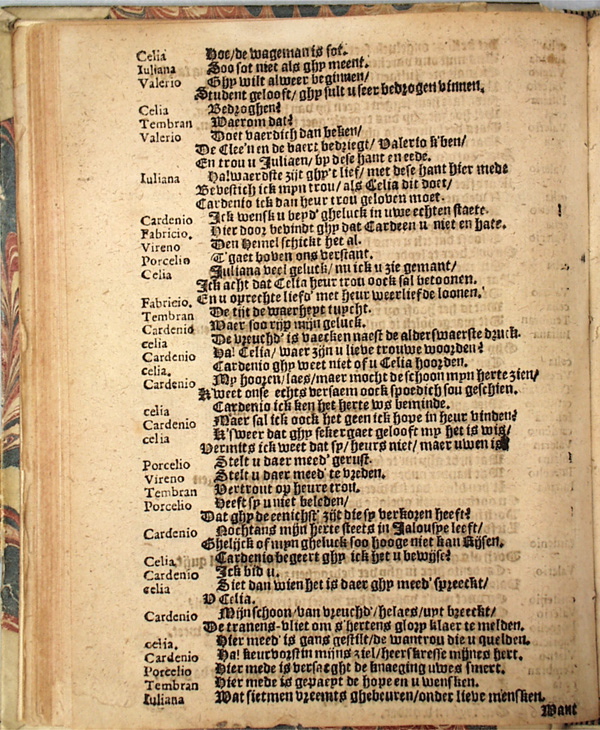 Celia Hoe/de wageman is sot.
Iuliana Soo sot niet als ghy meent.
Valerio Ghy wilt alweer beginnen/
Student gelooft/ ghy sult u seer bedrogen vinnen.
Celia Bedroghen?
Tembran Waerom dat?
Valerio Doet vaerdich dan heken/
De Clee'n en de baert bedriegt/ Valerio k'ben/
En trou u Juliaen/ by dese hant en eede.
Iuliana Halwaerdste zijt ghy't lief/ met dese hant hier mede
Bevestich ick myn trou/ als Celia dit doet/
Cardenio ick dan heur trou geloven moet.
Cardenio Ick wensk u beyd' gheluck in uwe echten staete.
Fabricio. Hier door bevindt ghy dat Cardeen u niet en hate.
Vireno Den Hemel schickt het al.
Porcelio T'gaet boven ons verstant.
Celia Juliana veel geluck/ nu ick u zie gemant/
Ick acht dat Celia heur trou oock sal betoonen.
Fabricio. En u oprechte liefd' met heur weerliefde loonen.
Tembran De tijt de waerheyt tuycht.
Cardenio Waer soo ryp mijn geluck.
celia De vreuchd' is vaecken naest de alderswaerste druck.
Cardenio Ha! Celia/ waer zijn u lieve trouwe woorden?
celia. Cardenio ghy weet niet of u Celia hoorden.
Cardenio My hooren/laes/maer mocht de schoon myn herte zien/
K'weet onse echts versaem oock spoedich sou geschien.
celia Cardenio ick ken het herte ws beminde.
Cardenio Maer sal ick oock het geen ick hope in heur vinden?
celia K'sweer dat ghy seker gaet gelooft my het is wis/
Vermits ick weet dat sy/ heurs niet/ maer uwen is
Porcelio Stelt u daer meed' gerust.
Vireno Stelt u daer meed te vreden.
Tembran Vertrout op heure trou.
Porcelio Heeft sy u niet beleden/
Dat ghy de eenichst' zijt die sy verkoren heeft?
Cardenio Nochtans mijn herte steets in Jalousye leeft/
Ghelijck of myn gheluck soo hooge niet kan Rijsen.
Celia Cardenio begeert ghy ick het u bewijse?
Cardenio Ick bid u.
celia Siet dan wien het is daer ghy meed' spreeckt/
U Celia.
Cardenio Mijn schoon/van vreuchd'/helaes/uyt breeckt/
De tranens-vliet om s'hertens glory klaer te melden.
celia. Hier meed' is gans gestilt/de wantrou die u quelden.
Cardenio Ha! keurvorstin mijns ziel/heerskresse mijnes hert.
Porcelio Hier mede is versacght de knaeging uwes smert.
Tembran Hier mede is gepaeyt de hope en u wensken.
Iuliana Wat sietmen vreemts ghebeuren/onder lieve mensken.
Want